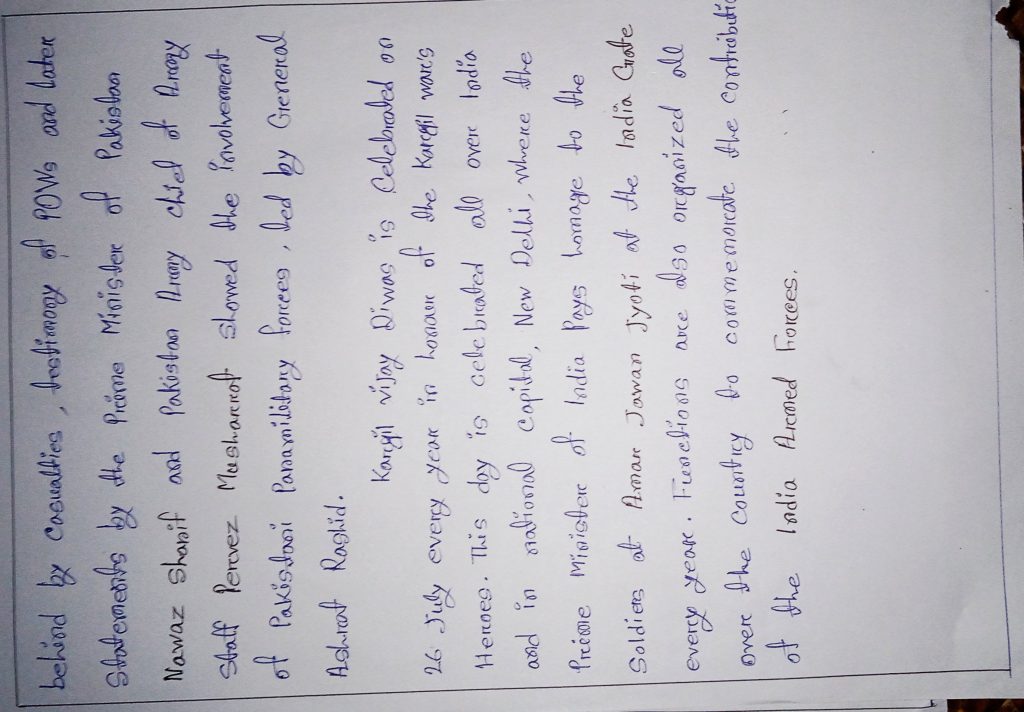 behind by casualties, testimony of POWs and later
Statements by the Prime Minister of Pakistan
Nawaz Sharif and Pakistan Army chief of Army
Staff Pervez Musharraf showed the involvement
of Pakistani Paramilitary forces, led by General
Ashraf Rashid.
Kargil vijay Diwas is Celebrated on
26 July every year in honour of the Kargil war's
Heroes. This day is celebrated all over India
and in national capital, New Delhi, where the
Prime Minister of India Pays homage to the
Soldiers at Amar Jawan Jyoti at the India Gate
every year. Functions are also organized all
over the country to commemorate the contributio
of the India Armed Forces.